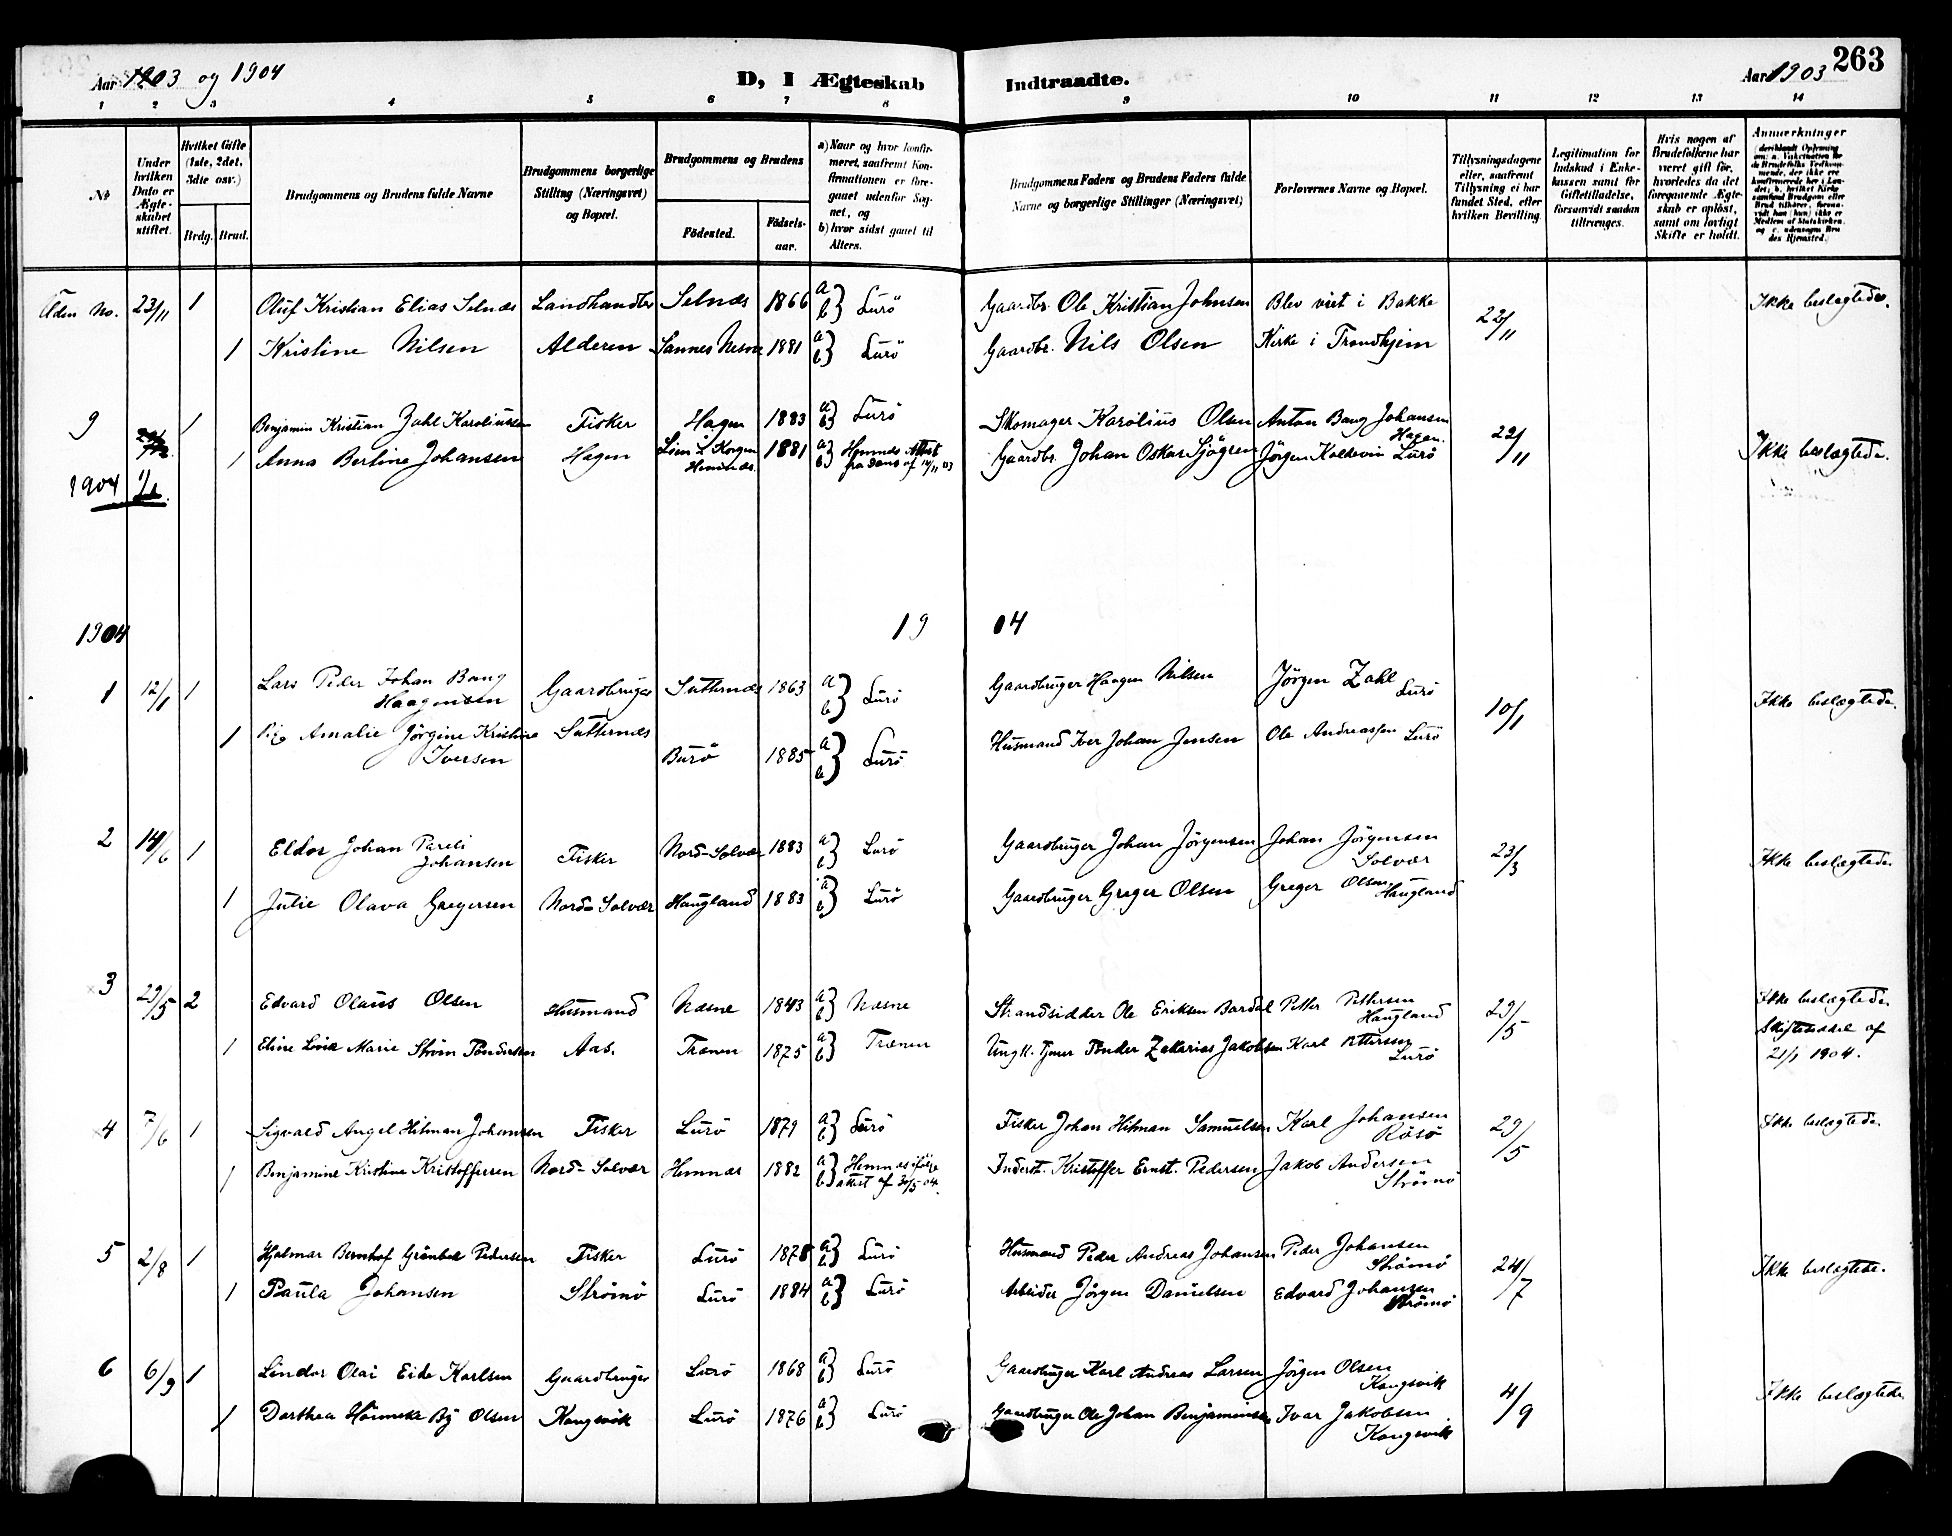 263
Aar 1903 og 1904
D, I Ægteskab Indtraadte.
Aar 1903
1 2 3 4 5 6 7 8 9 10 11 12 13 14
№
Under hvilken Dato er Ægteskabet stiftet.
Hvilket Gifte (1ste, 2det, 3die osv.)
Brdg. Brud.
Brudgommens og Brudens fulde Navne
Brudgommens borgerlige Stilling (Næringsvei) og Bopæl.
Brudgommens og Brudens
Födested.
Födselsaar.
a) Naar og hvor konfirmeret, saafremt Konfirmationen er foregaaet udenfor Sognet, og
b) hvor sidst gaaet til Alters.
Brudgommens Faders og Brudens Faders fulde Navne og borgerlige Stillinger (Næringsvei)
Forlovernes Navne og Bopæl.
Tillysningsdagene eller, saafremt Tillysning ei har fundet Sted, efter hvilken Bevilling.
Legitimation for Indskud i Enkekassen samt for Giftetilladelse, forsaavidt saadan tiltrænges.
Hvis nogen af Brudefolkene har været gift før, hvorledes da det foregaaende Ægteskab er oplöst, samt om lovligt Skifte er holdt.
Anmærkninger
Uden No. 23/11 1 Oluf Kristian Elias Selnæs Landhandler Selnæs 1866 a b } Lurö Gaardbr. Ole Kristian Johnsen Blev viet i Bakke 22/11 Ikke beslægtede.
1 Kristine Nilsen Alderen Sannes Nesne 1881 a b } Lurö Gaardbr. Nils Olsen Kirke i Trondhjem
9 1 Benjamin Kristian Zahl Karoliussen Fisker Hagen 1883 a b } Lurö Skomager Karolius Olsen Anton Bang Johansen Hagen. 22/11 Ikke beslægtede.
1 Anna Berline Johansen Hagen Korgen Hemnæs. 1881 a b } Hemnes Attest fra Gaardbr. Johan Oskar Sjögren Jörgen Koldevin Lurö
1904 1/1.
1904 19 04
1 12/1 1 Lars Peder Johan Bang Haagensen Gaardbruger Sutternæs 1863 a b } Lurö Gaardbruger Haagen Nilsen Jörgen Zahl Lurö 10/1 Ikke beslægtede.
1 Pige Amalie Jörgine Kristine Iversen Sutternæs Burö 1885 a b } Lurö Husmand Iver Johan Jensen Ole Andreassen Lurö
2 14/6 1 Eldor Johan Pareli Johansen Fisker Nord-Solvær 1883 a b } Lurö Gaardbruger Johan Jörgensen Johan Jörgensen Solvær 23/3 Ikke beslægtede
1 Julie Olava Gregersen Nord-Solvær Haugland 1883 a b } Lurö Gaardbruger Greger Olsen Greger Olsen Haugland
3 29/5 2 Edvard Olaus Olsen Husmand Næsne 1843 a b } Næsne Strandsidder Ole Eriksen Bardal Petter Pettersen Haugland 29/5 Ikke beslægtede.
1 Eline Marie Ström Töndersen Aas. Trænen 1875 a b } Trænen Ungk. Tönder Zakarias Jakobsen Karl Pettersen Lurö Skifteseddel af 21/1 1904.
4 7/6 1 Sigvald Angel Hitman Johansen Fisker Lurö 1879 a b } Lurö Fisker Johan Hitman Samuelsen Karl Johansen Rösö 29/5 Ikke beslægtede.
1 Benjamine Kristine Kristoffersen Nord-Solvær Hemnæs 1882 a b } Hemnes ifölge attest af 30/5 04. Inderst. Kristoffer Ernst. Pedersen Jakob Andersen Strömö
5 2/8 1 Hjalmar Bernhof Grönbek Pedersen Fisker Lurö 1878 a b } Lurö Husmand Peder Andreas Johansen Peder Johansen Strömö 24/7 Ikke beslægtede.
1 Paula Johansen Strömö Lurö 1884 a b } Lurö Arbeider Jörgen Danielsen Edvard Johansen Strömö
6 6/9 1 Lindor Olai Eide Karlsen Gaardbruger Lurö 1868 a b } Lurö Gaardbruger Karl Andreas Larsen Jörgen Olsen Kongsvik 4/9 Ikke beslægtede
1 Dorthea Hönneke By Olsen Kongsvik Lurö 1876 a b } Lurö Gaardbruger Ole Johan Benjaminsen Ivar Jakobsen Kongsvik